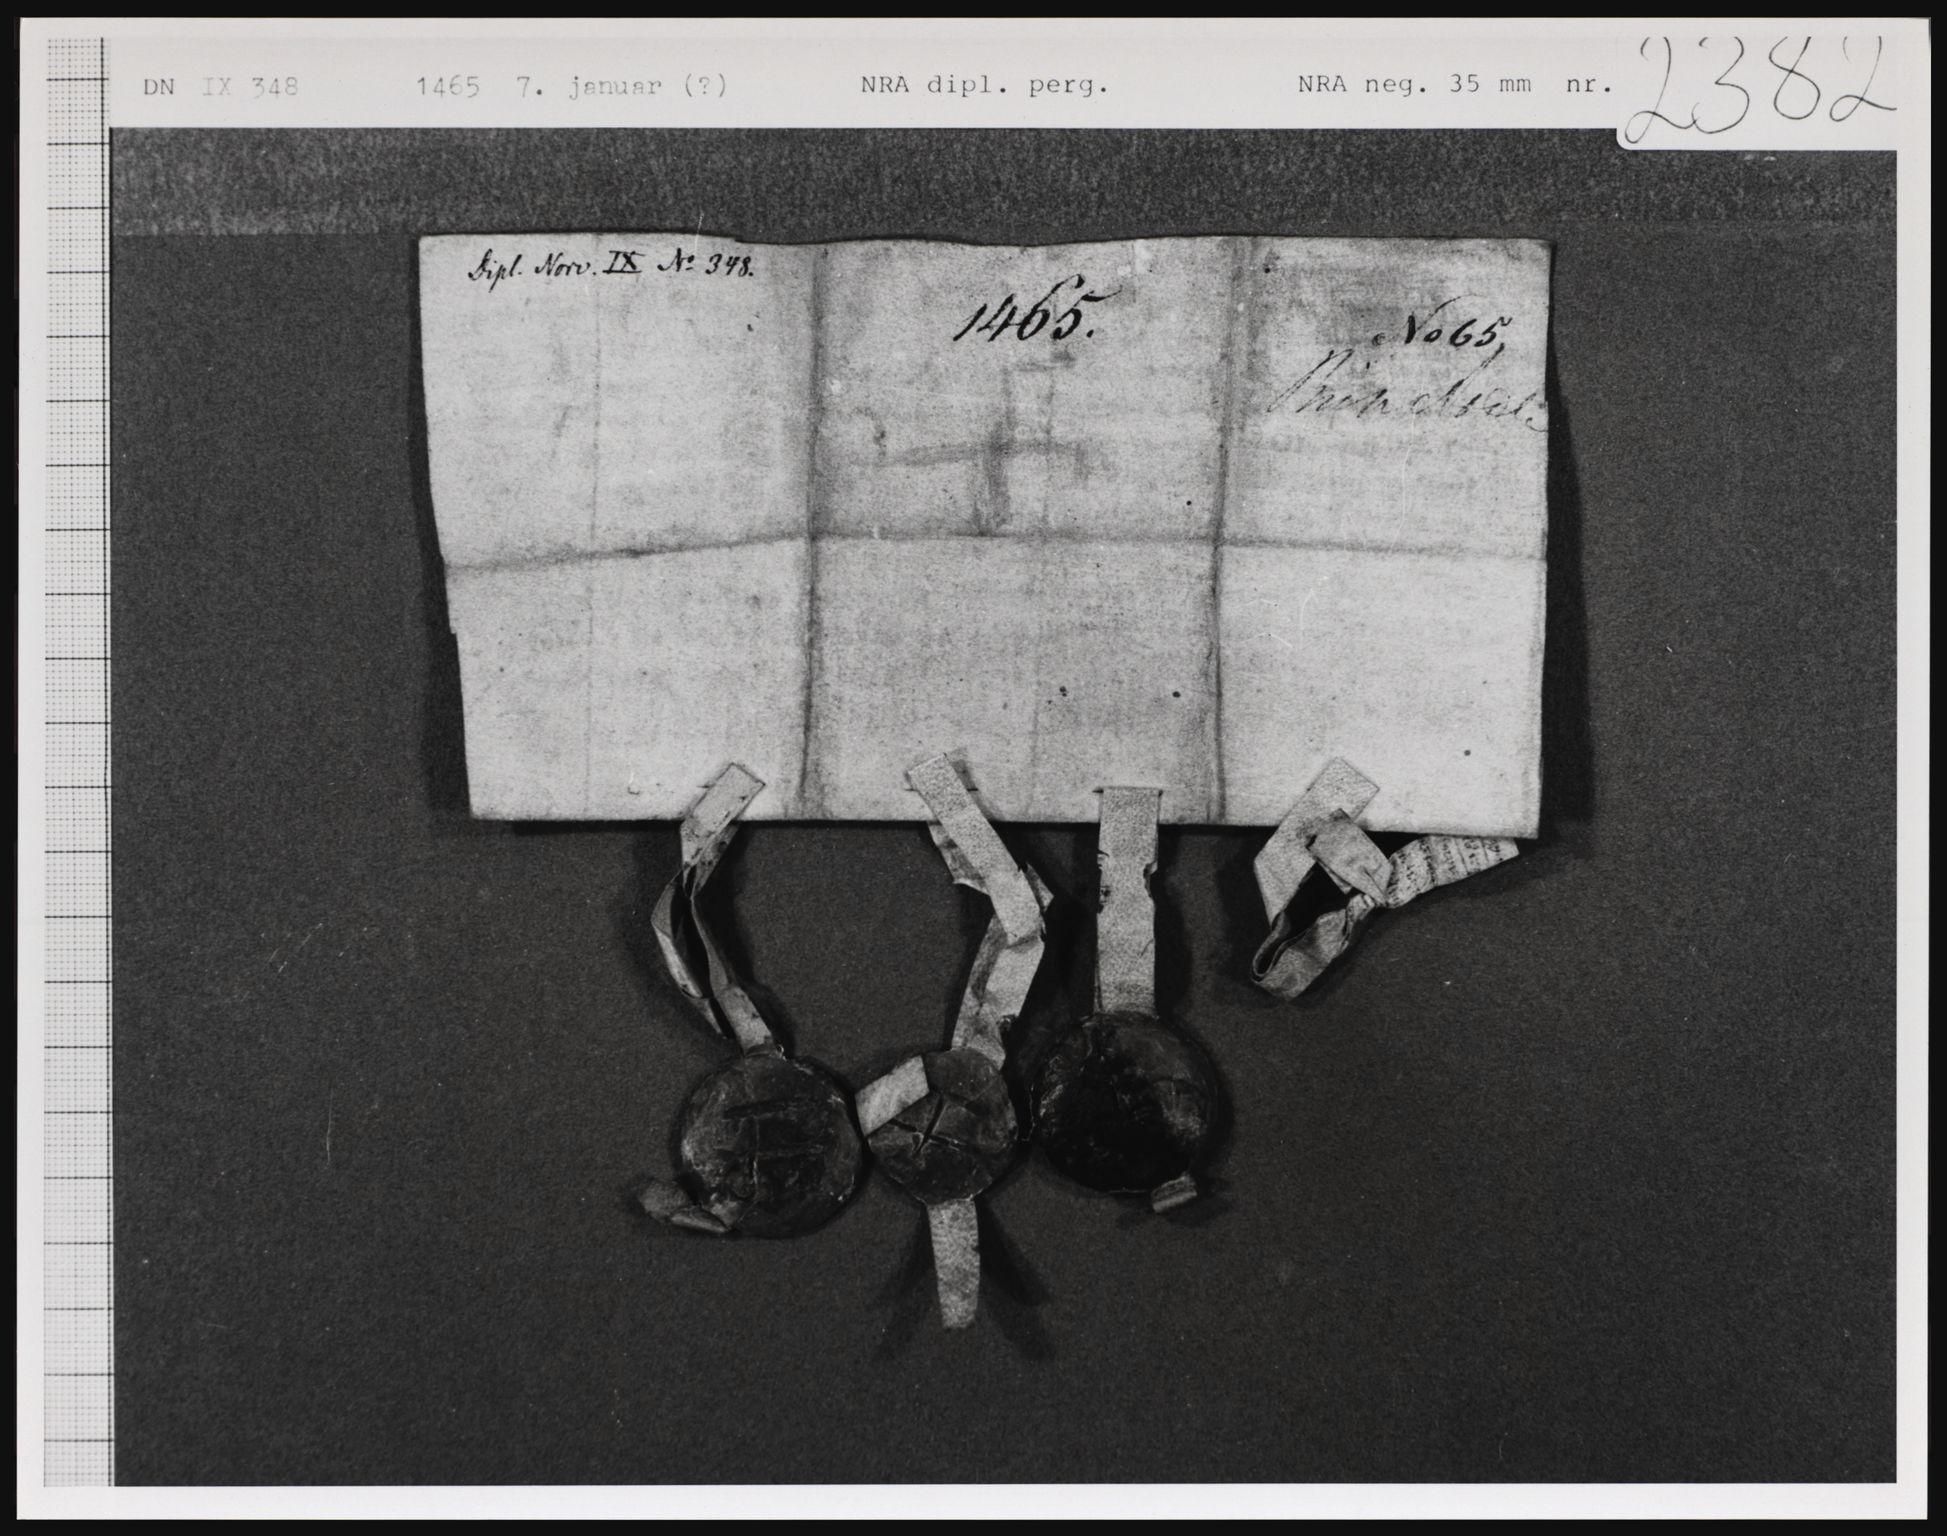 DN IX 348 1465 7. januar (?) NRA dipl. perg. NRA neg. 35 mm nr. 2382
Dipl. Norv. IX No 348.
1465.
No 65,